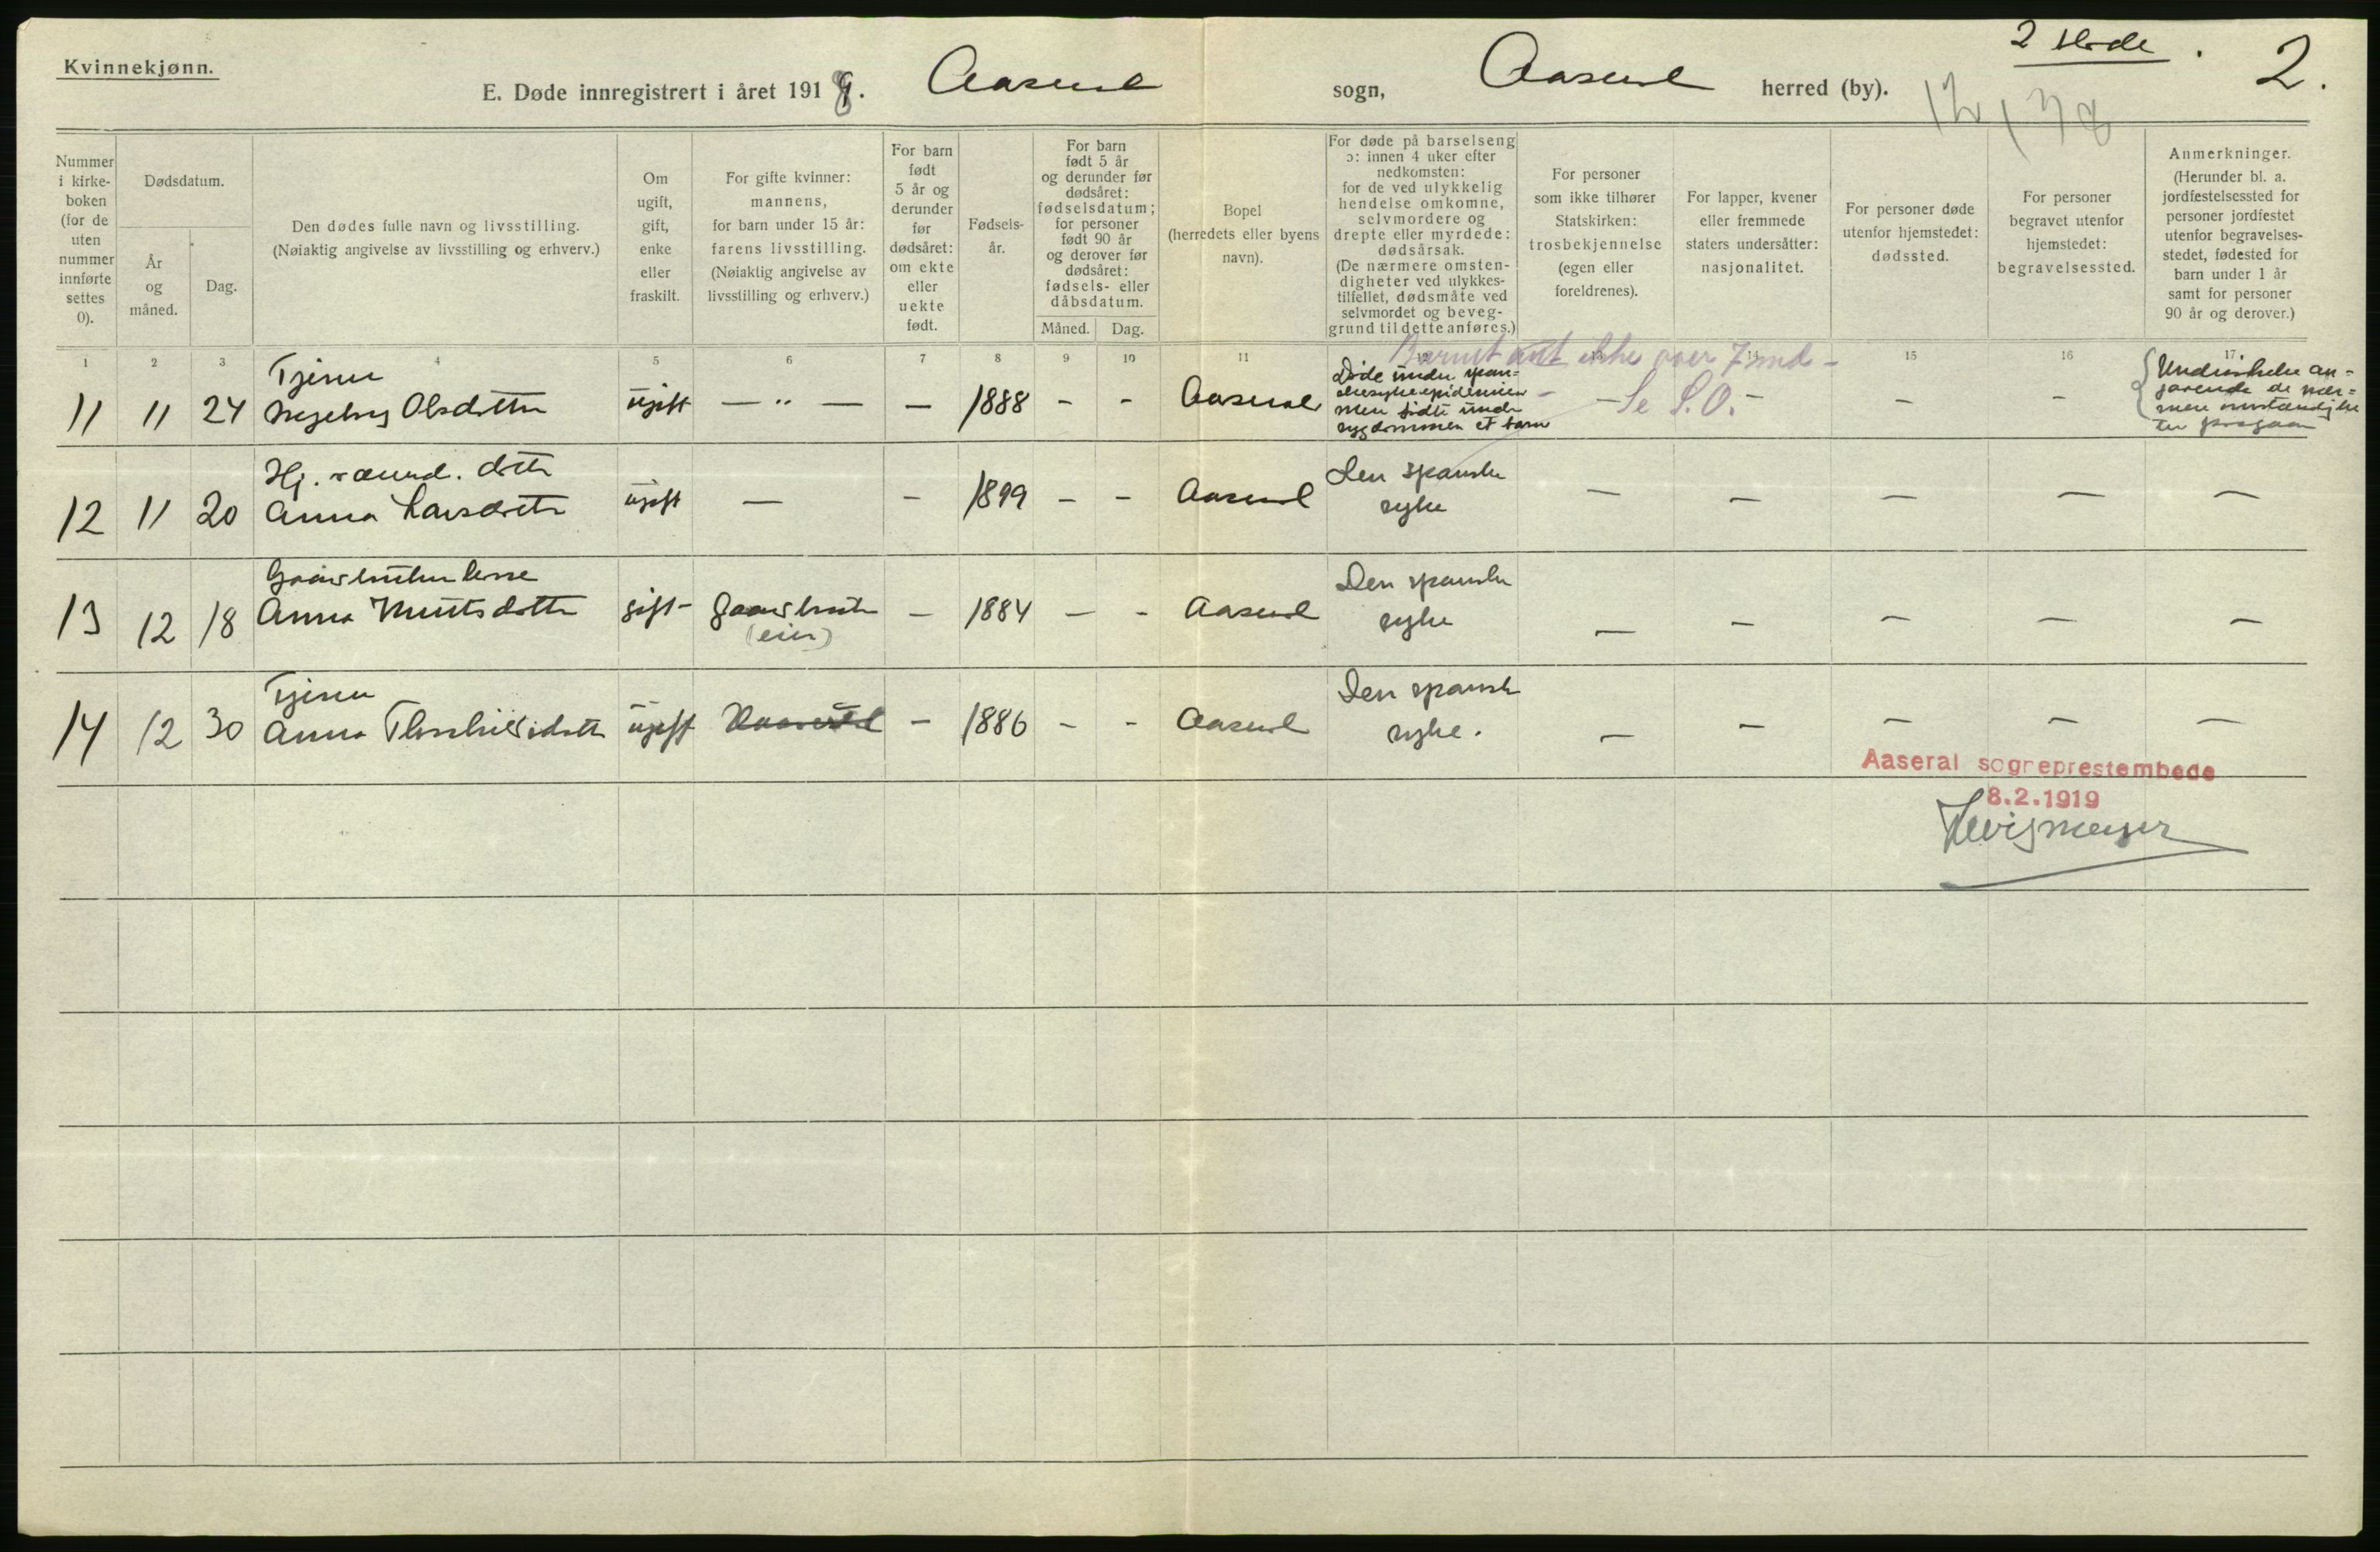 Kvinnekjønn.
2 . 2.
E. Døde innregistrert i året 1918. Aaseral sogn, Aaseral herred (by).
Nummer
i kirke-
boken
(for de
uten
nummer
innførte
settes
0).
Dødsdatum.
År
og
måned.
Dag.
Den dødes fulle navn og livsstilling.
(Nøiaktig angivelse av livsstilling og erhverv.)
Om
ugift,
gift,
enke
eller
fraskilt.
For gifte kvinner:
mannens,
for barn under 15 år:
farens livsstilling.
(Nøiaktig angivelse av
livsstilling og erhverv.)
For barn
født
5 år og
derunder
før
dødsåret:
om ekte
eller
uekte
født.
Fødsels-
år.
For barn
født 5 år
og derunder før
dødsåret:
fødselsdatum;
for personer
født 90 år
og derover før
dødsåret:
fødsels- eller
dåbsdatum.
Måned. Dag.
Bopel
(herredets eller byens
navn).
For døde på barselseng
ɔ: innen 4 uker efter
nedkomsten:
for de ved ulykkelig
hendelse omkomne,
selvmordere og
drepte eller myrdede:
dødsårsak.
(De nærmere omsten-
digheter ved ulykkes-
tilfellet, dødsmåte ved
selvmordet og beveg-
grund til dette anføres.)
For personer
som ikke tilhører
Statskirken:
trosbekjennelse
(egen eller
foreldrenes).
For lapper, kvener
eller fremmede
staters undersåtter:
nasjonalitet.
For personer døde
utenfor hjemstedet:
dødssted.
For personer
begravet utenfor
hjemstedet:
begravelsessted.
Anmerkninger.
(Herunder bl. a.
jordfestelsessted for
personer jordfestet
utenfor begravelses-
stedet, fødested for
barn under 1 år
samt for personer
90 år og derover.)
1 2 3 4 5 6 7 8 9 10 11 12 13 14 15 16 17
Barnet ikke over 7 md -
Tjener
11 11 24 Ingeborg Olsdatter ugift — " — — 1888 - - Aaseral
Døde under span-
skesykeepidemien
men fødte under
sygdommen et barn
- Se S.O. - - -
Undersøkelse an-
gaaende de nær-
mere omstændighe
ter foregaar
Hj. værend. datter
12 11 20 Anna Larsdatter ugift — - 1899 - - Aaseral Den spanske
syke
— — — — —
Gaardbrukerkone
13 12 18 Anna Knutsdatter gift - Gaardbruker
(eier)
- 1884 - - Aaseral Den spanske
syke
— — — — —
Tjener
14 12 30 Anna ugift - 1886 - - Aaseral Den spanske
syke.
— — — — —
Aaseral sogneprestembede
8.2.1919